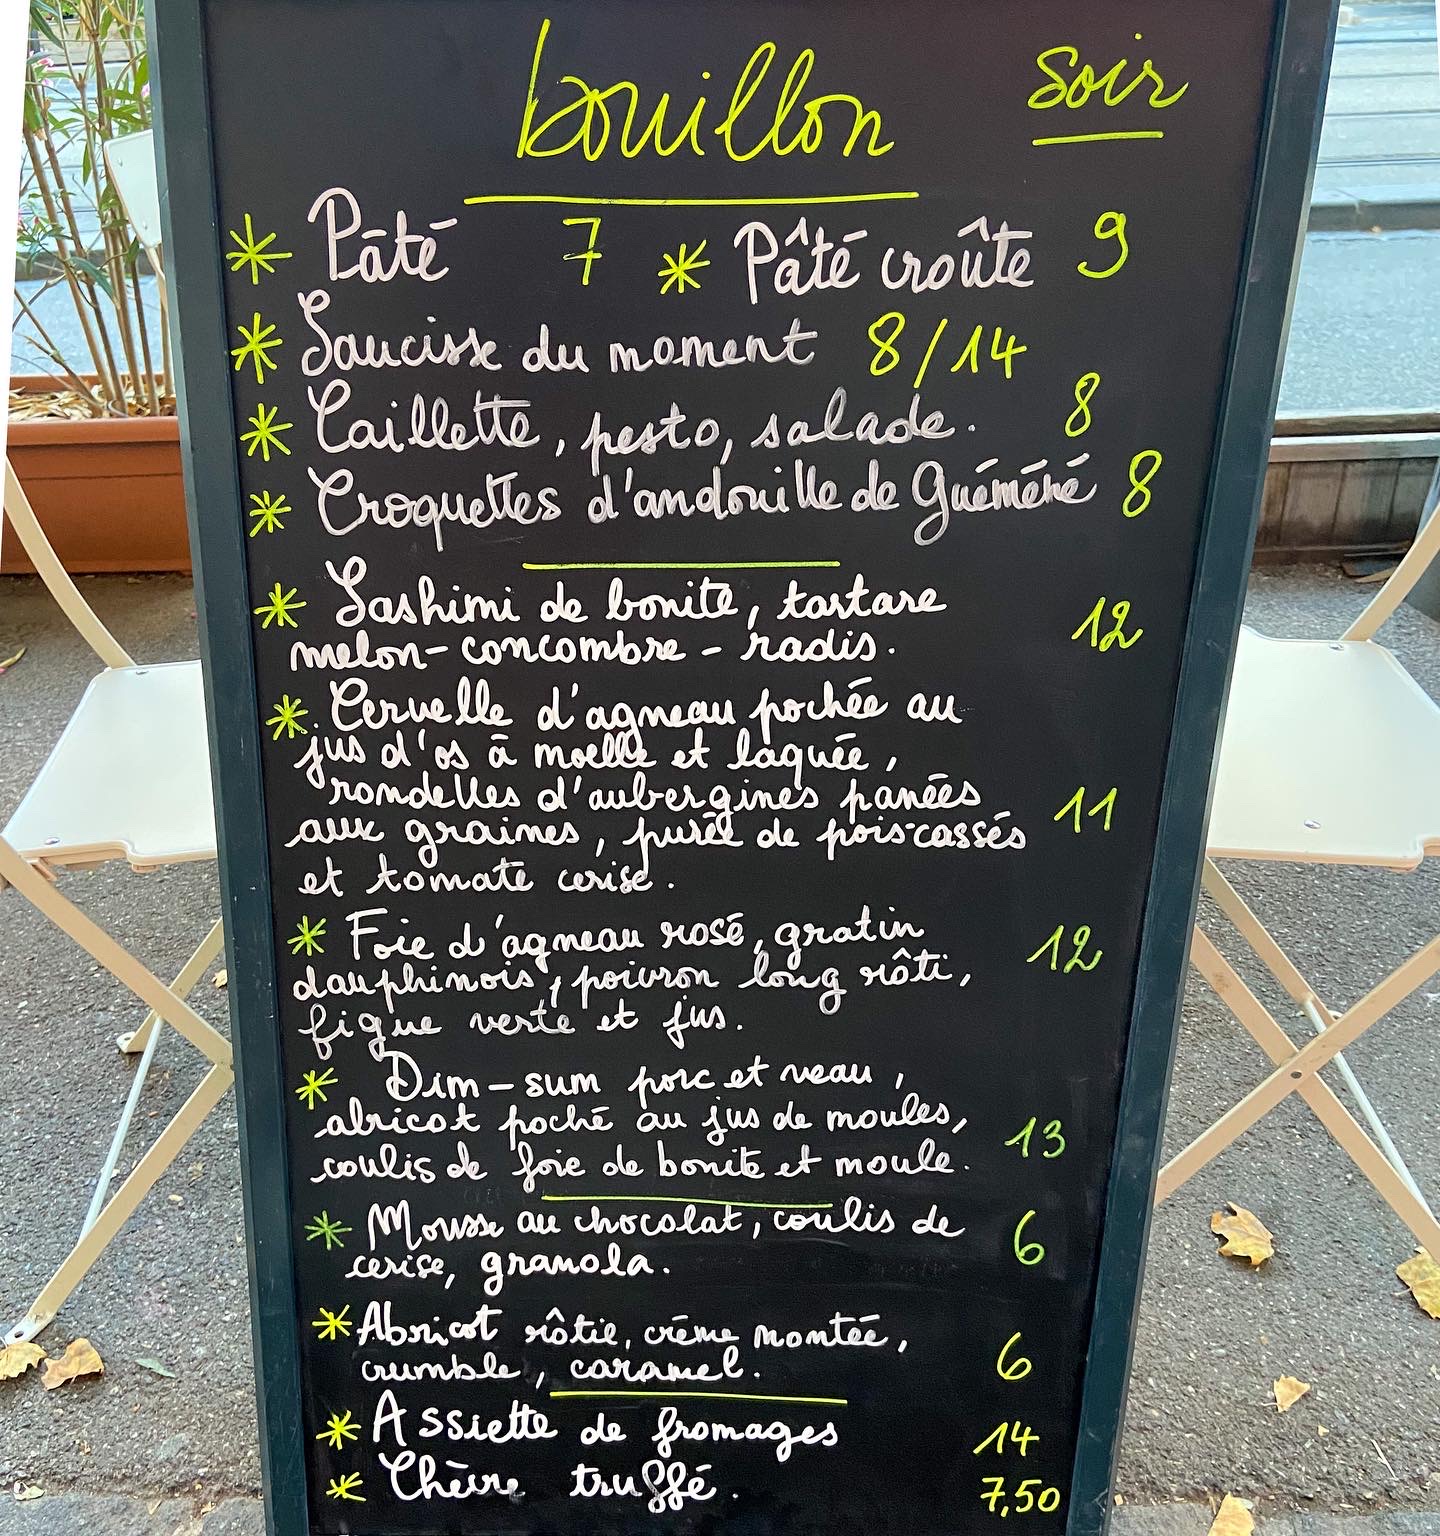 bouillon soir
* Pâté 7 * Pâté croûte 9
* Saucisse du moment 8/14
* Caillette, pesto, salade. 8
* Croquettes d'andouille de Guéméné 8
* Sashimi de bonite, tartare
melon-concombre-radis. 12
* Cervelle d'agneau pochée au
jus d'os à moelle et laquée,
rondelles d'aubergines panées
aux graines, purée de pois-cassés 11
et tomate cerise.
* Foie d'agneau rosé, gratin
dauphinois, poivron long rôti, 12
figue verte et jus.
* Dim-sum porc et veau,
abricot poché au jus de moules,
coulis de foie de bonite et moule. 13
* Mousse au chocolat, coulis de
cerise, granola. 6
* Abricot rôtie, crème montée,
crumble, caramel. 6
* Assiette de fromages 14
* Chèvre truffé. 7,50